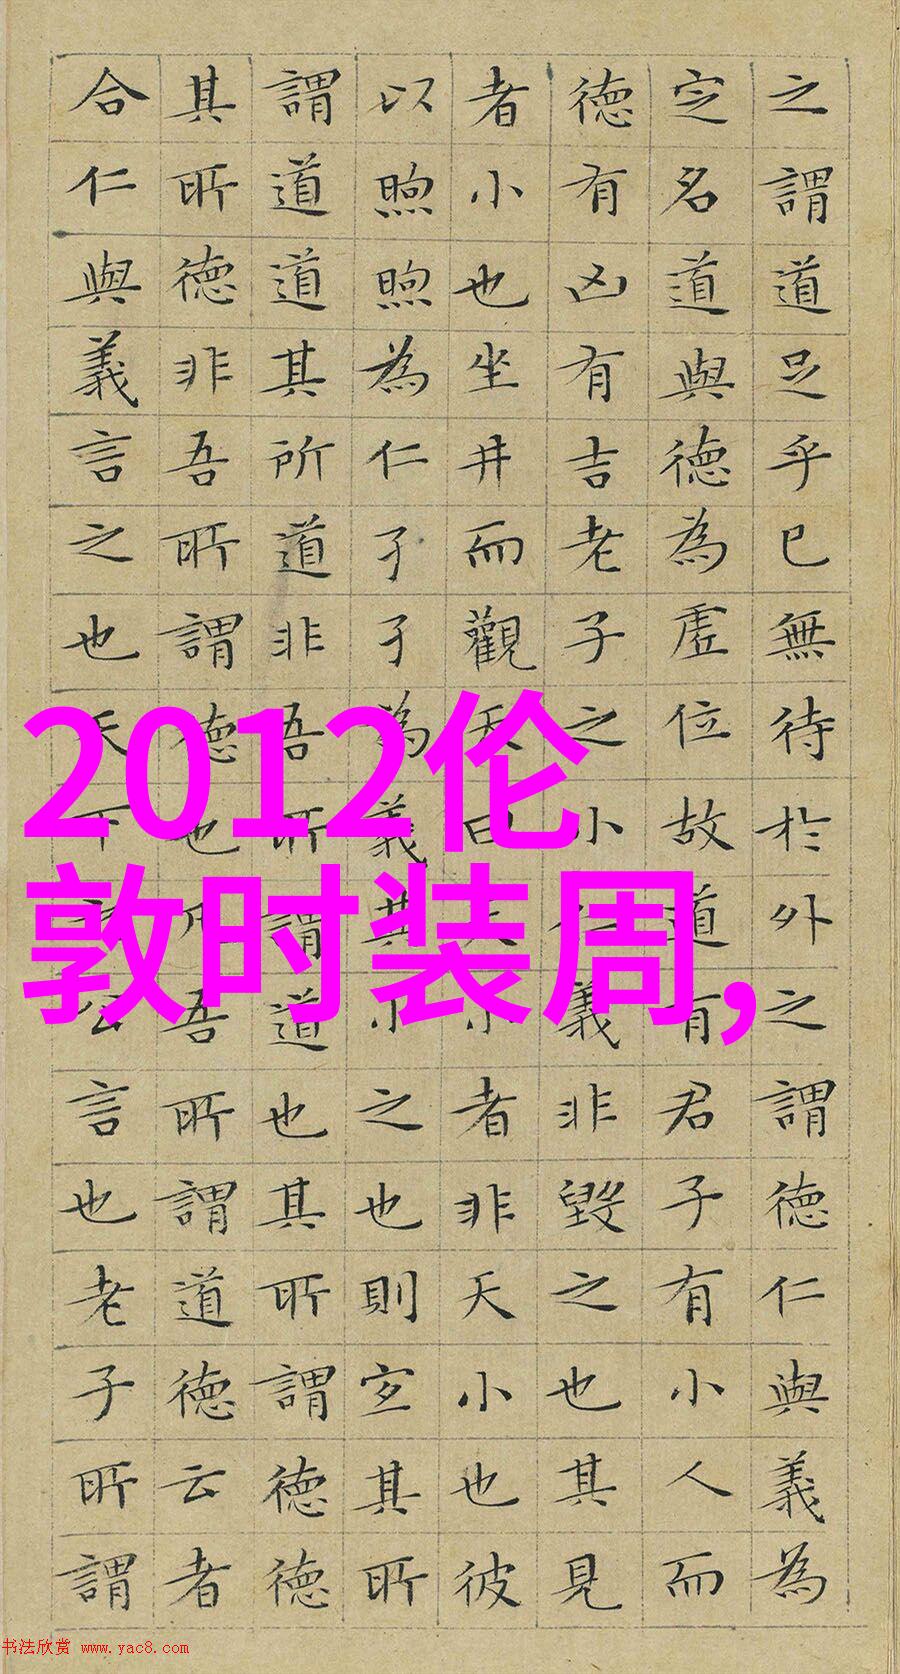 之謂道足乎已無待於外之謂德仁與義為
定名道與德為虛位故道有君子有小人而
德有凶有吉老子之小仁義非毀之也其見
者小也坐井而觀天曰天小者非天小也彼
以煦煦為仁孑孑為義其小之也則宜其所
謂道道其所道非吾所謂道也其所謂德德
其所德非吾所謂德也凡吾所謂道德云者
合仁與義言之也天下之公言也老子所謂
2012伦
敦时装周,
书法欣赏 www.yac8.com